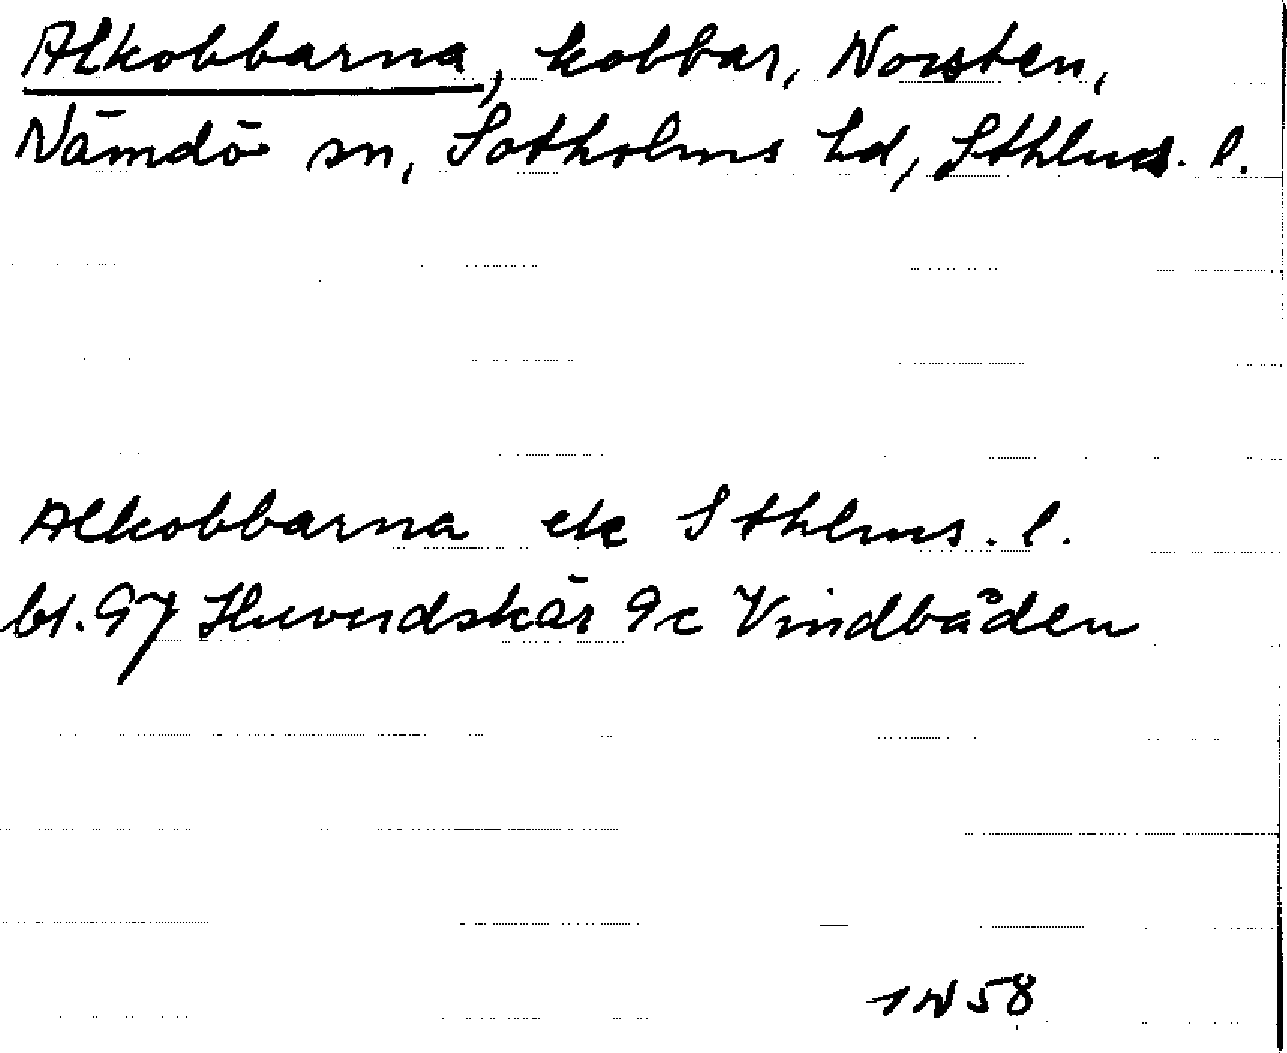 Alkobbarna, kobbar, Norsten,
Nämdö sn, Sotholms hd, Sthlms. l.
Alkobbarna ek Sthlms. l.
bl. 97 Huvudskär 9c Vindbåden
1 N 58